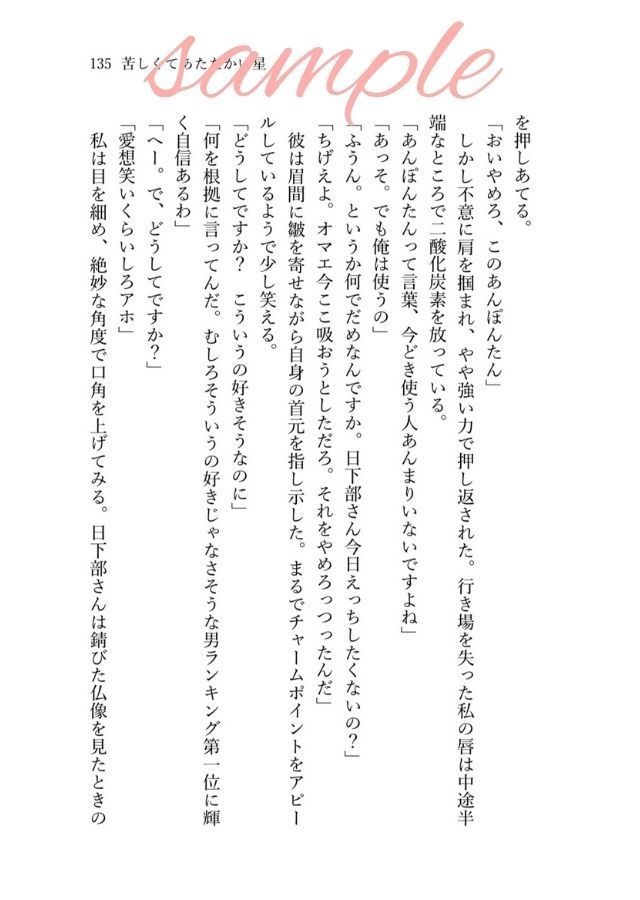 sample
135 苦しくてあたたかい星
を押しあてる。
「おいやめろ、このあんぽんたん」
しかし不意に肩を掴まれ、やや強い力で押し返された。行き場を失った私の唇は中途半
端なところで二酸化炭素を放っている。
「あんぽんたんって言葉、今どき使う人あんまりいないですよね」
「あっそ。でも俺は使うの」
「ふうん。というか何でだめなんですか。日下部さん今日えっちしたくないの？」
「ちげえよ。オマエ今ここ吸おうとしただろ。それをやめろっつったんだ」
彼は眉間に皺を寄せながら自身の首元を指し示した。まるでチャームポイントをアピー
ルしているようで少し笑える。
「どうしてですか？　こういうの好きそうなのに」
「何を根拠に言ってんだ。むしろそういうの好きじゃなさそうな男ランキング第一位に輝
く自信あるわ」
「へー。で、どうしてですか？」
「愛想笑いくらいしろアホ」
私は目を細め、絶妙な角度で口角を上げてみる。日下部さんは錆びた仏像を見たときの